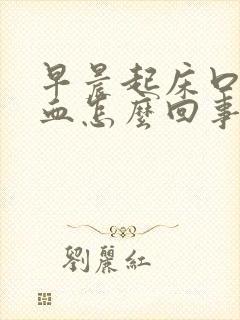 早晨起床口
血怎麼回事
劉麗紅